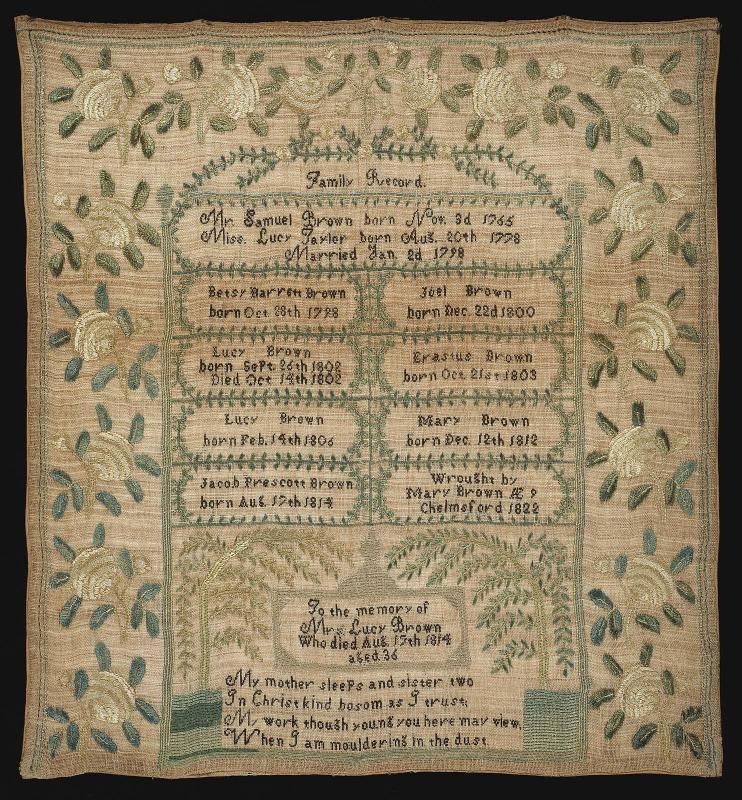 Family Record.
Mr. Samuel Brown born Nov. 3d 1765
Miss. Lucy Taylor born Aug. 20th 1778
Married Jan. 2d 1798
Betsy Barrett Brown
born Oct 28th 1798
Joel Brown
born Dec. 22d 1800
Lucy Brown
born Sept. 26th 1802
Died Oct 14th 1802
Erastus Brown
born Oct. 21st 1803
Lucy Brown
born Feb. 14th 1806
Mary Brown
born Dec. 12th 1812
Jacob Prescott Brown
born Aug. 17th 1814
Wrought by
Mary Brown Æ 9
Chelmsford 1822
To the memory of
Mrs Lucy Brown
Who died Aug. 17th 1814
aged 36
My mother sleeps and sister two
In Christ kind bosom as I trust;
M work though young you here may view,
When I am mouldering in the dust.